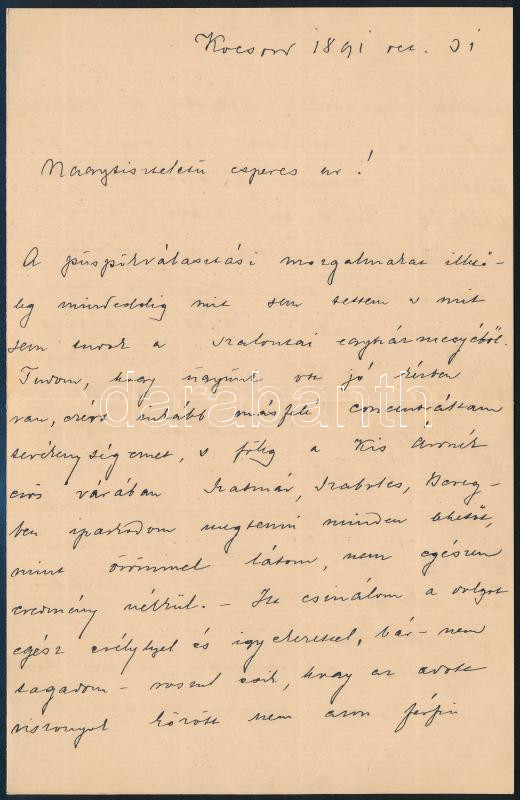 Kocsord 1891 oct. 31
Nagytiszteletű esperes ur!
A püspökválasztási mozgalmakat illető-
leg mindeddig mit sem tettem s mit
sem tudok a szalontai egyházmegyéből.
Tudom, hogy ügyünk ott jó kézben
van, ezért inkább másfelé concentráltam
tevékenységemet, s főleg a Kis Áronék
erős várában Szatmár, Szabolcs, Bereg-
ben iparkodom megtenni minden lehetőt,
mint örömmel látom, nem egészen
eredmény nélkül. – Itt csinálom a dolgot
egész erélylyel és igyekezettel, bár – nem
tagadom – roszul esik, hogy az adott
viszonyok között nem azon férfiu
darabanth